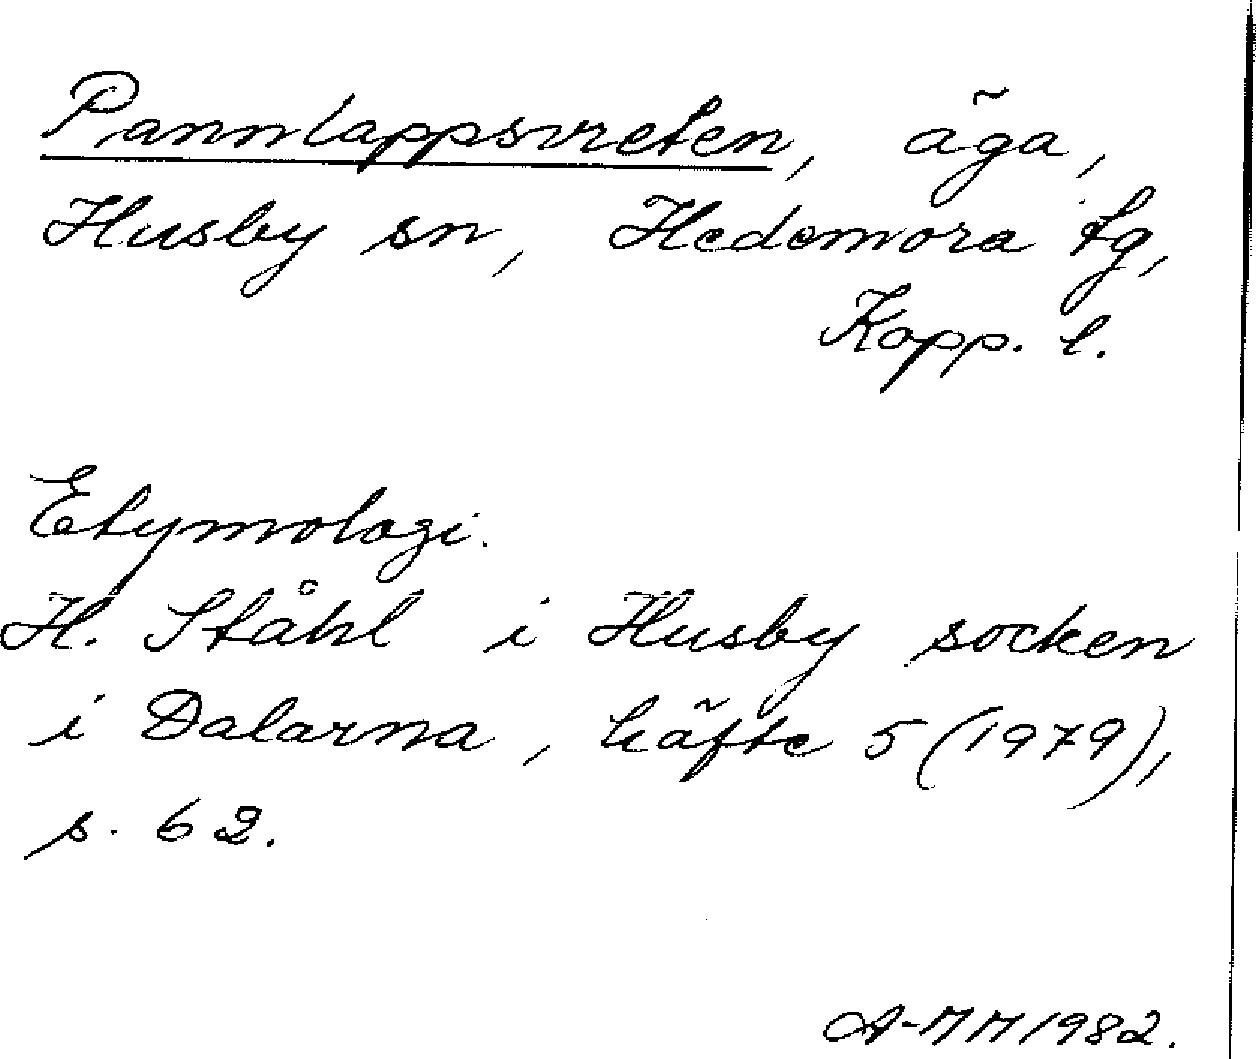 Pannlappsvreten, äga,
Husby sn, Hedemora tg,
Kopp. l.
Etymologi.
H. Ståhl i Husby socken
i Dalarna, häfte 5 (1979),
s. 62.
A-MM 1982.